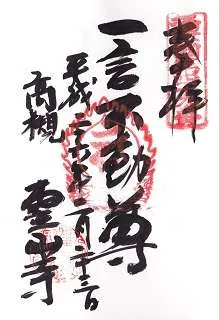 奉拝
一言不動尊
平成二十六年二月二十三日
高槻
霊山寺